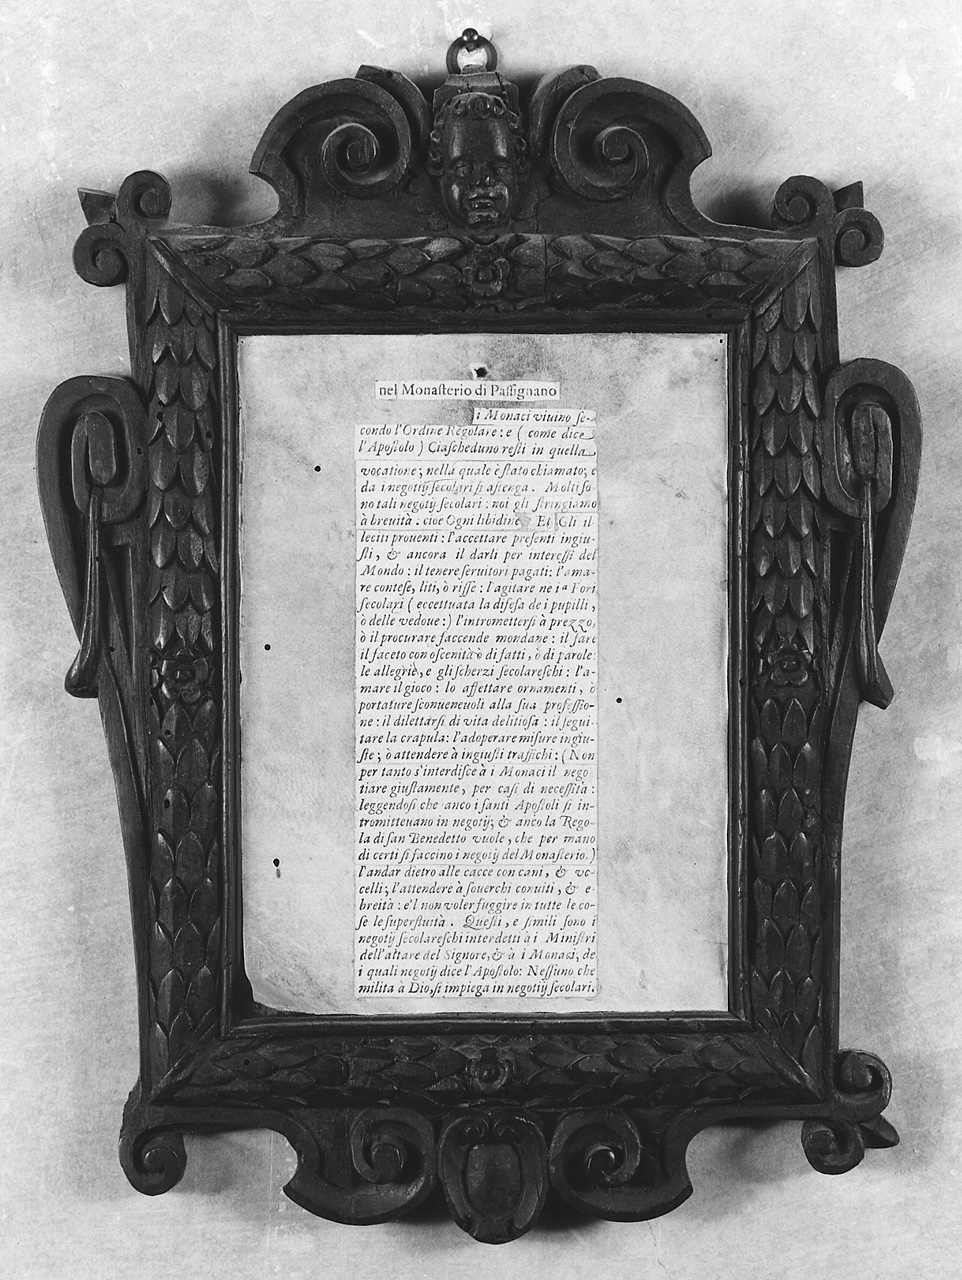 nel Monaſterio di Paſſignano
i Monaci viuino ſe-
condo l'Ordine Regolare: e ( come dice
l'Apoſtolo ) Ciaſcheduno reſti in quella
vocatione; nella quale è ſtato chiamato; e
da i negotij ſecolari ſi aſtenga. Molti ſo
no tali negotij ſecolari: noi gli ſtringiamo
à breuità: cioe Ogni libidine Et Gli il
leciti prouenti: l'accettare preſenti ingiu-
ſti, & ancora il darli per intereſſi del
Mondo: il tenere ſeruitori pagati: l'ama-
re conteſe, liti, ò riſſe: l'agitare ne i Fori
ſecolari ( eccettuata la difeſa de i pupilli,
ò delle vedoue:) l'intrometterſi à prezzo,
ò il procurare faccende mondane: il fare
il faceto con oſcenità ò di fatti, ò di parole:
le allegrie, e gli ſcherzi ſecolareſchi: l'a-
mare il gioco: lo affettare ornamenti, ò
portature ſconueneuoli alla ſua profeſſio-
ne: il dilettarſi di vita delitioſa: il ſegui-
tare la crapula: l'adoperare miſure ingiu-
ſte; ò attendere à ingiuſti traffichi: ( Non
per tanto s'interdiſce à i Monaci il nego
tiare giuſtamente, per caſi di neceſſità:
leggendoſi che anco i ſanti Apoſtoli ſi in-
tromitteuano in negotij; & anco la Rego-
la di ſan Benedetto vuole, che per mano
di certi ſi faccino i negotij del Monaſterio.)
l'andar dietro alle cacce con cani, & vc-
celli; l'attendere à ſouerchi conuiti, & e-
breità: e'l non voler fuggire in tutte le co-
ſe le ſuperfluità. Queſti, e ſimili ſono i
negotij ſecolareſchi interdetti à i Miniſtri
dell'altare del Signore, & à i Monaci, de
i quali negotij dice l'Apoſtolo: Neſſuno che
milita à Dio, ſi impiega in negotij ſecolari.